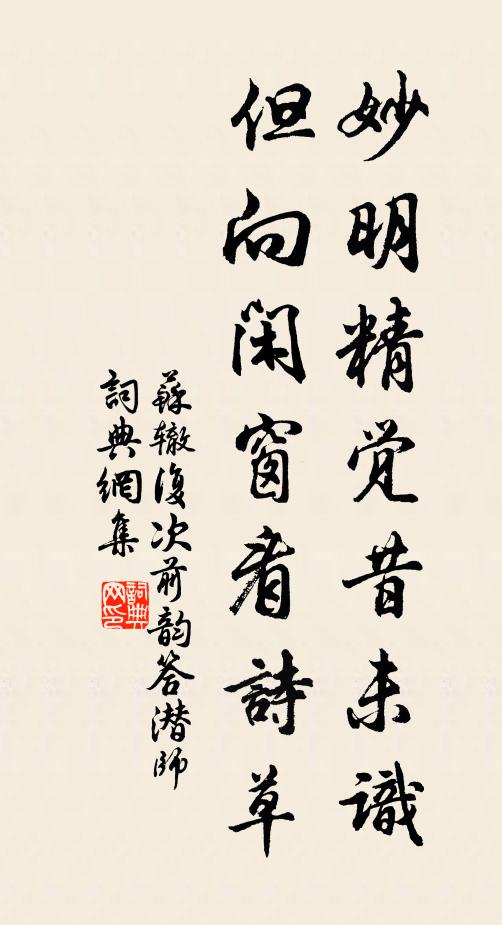 妙明精觉昔未識
但向閑窗看詩草
蘇辙復次前韵答潜師
詞典網集
詞典
网印